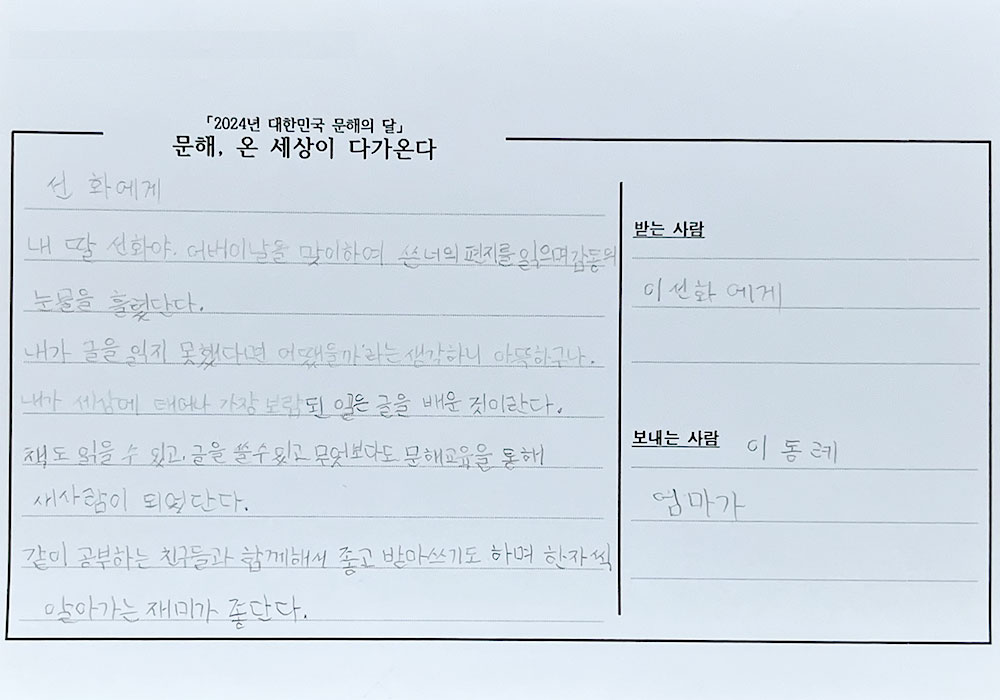 「2024년 대한민국 문해의 달」
문해, 온 세상이 다가온다
선 화에게
내 딸 선화야. 어버이날을 맞이하여 쓴 너의 편지를 읽으며 감동의
눈물을 흘렸단다.
내가 글을 읽지 못했다면 어땠을까 라는 생각하니 아뜩하구나.
내가 세상에 태어나 가장 보람된 일은 글을 배운 것이란다.
책도 읽을 수 있고, 글을 쓸 수 있고 무엇보다도 문해교육을 통해
새사람이 되었단다.
같이 공부하는 친구들과 함께해서 좋고 받아쓰기도 하며 한자씩
알아가는 재미가 좋단다.
받는 사람
이선화 에게
보내는 사람 이 동례
엄마가